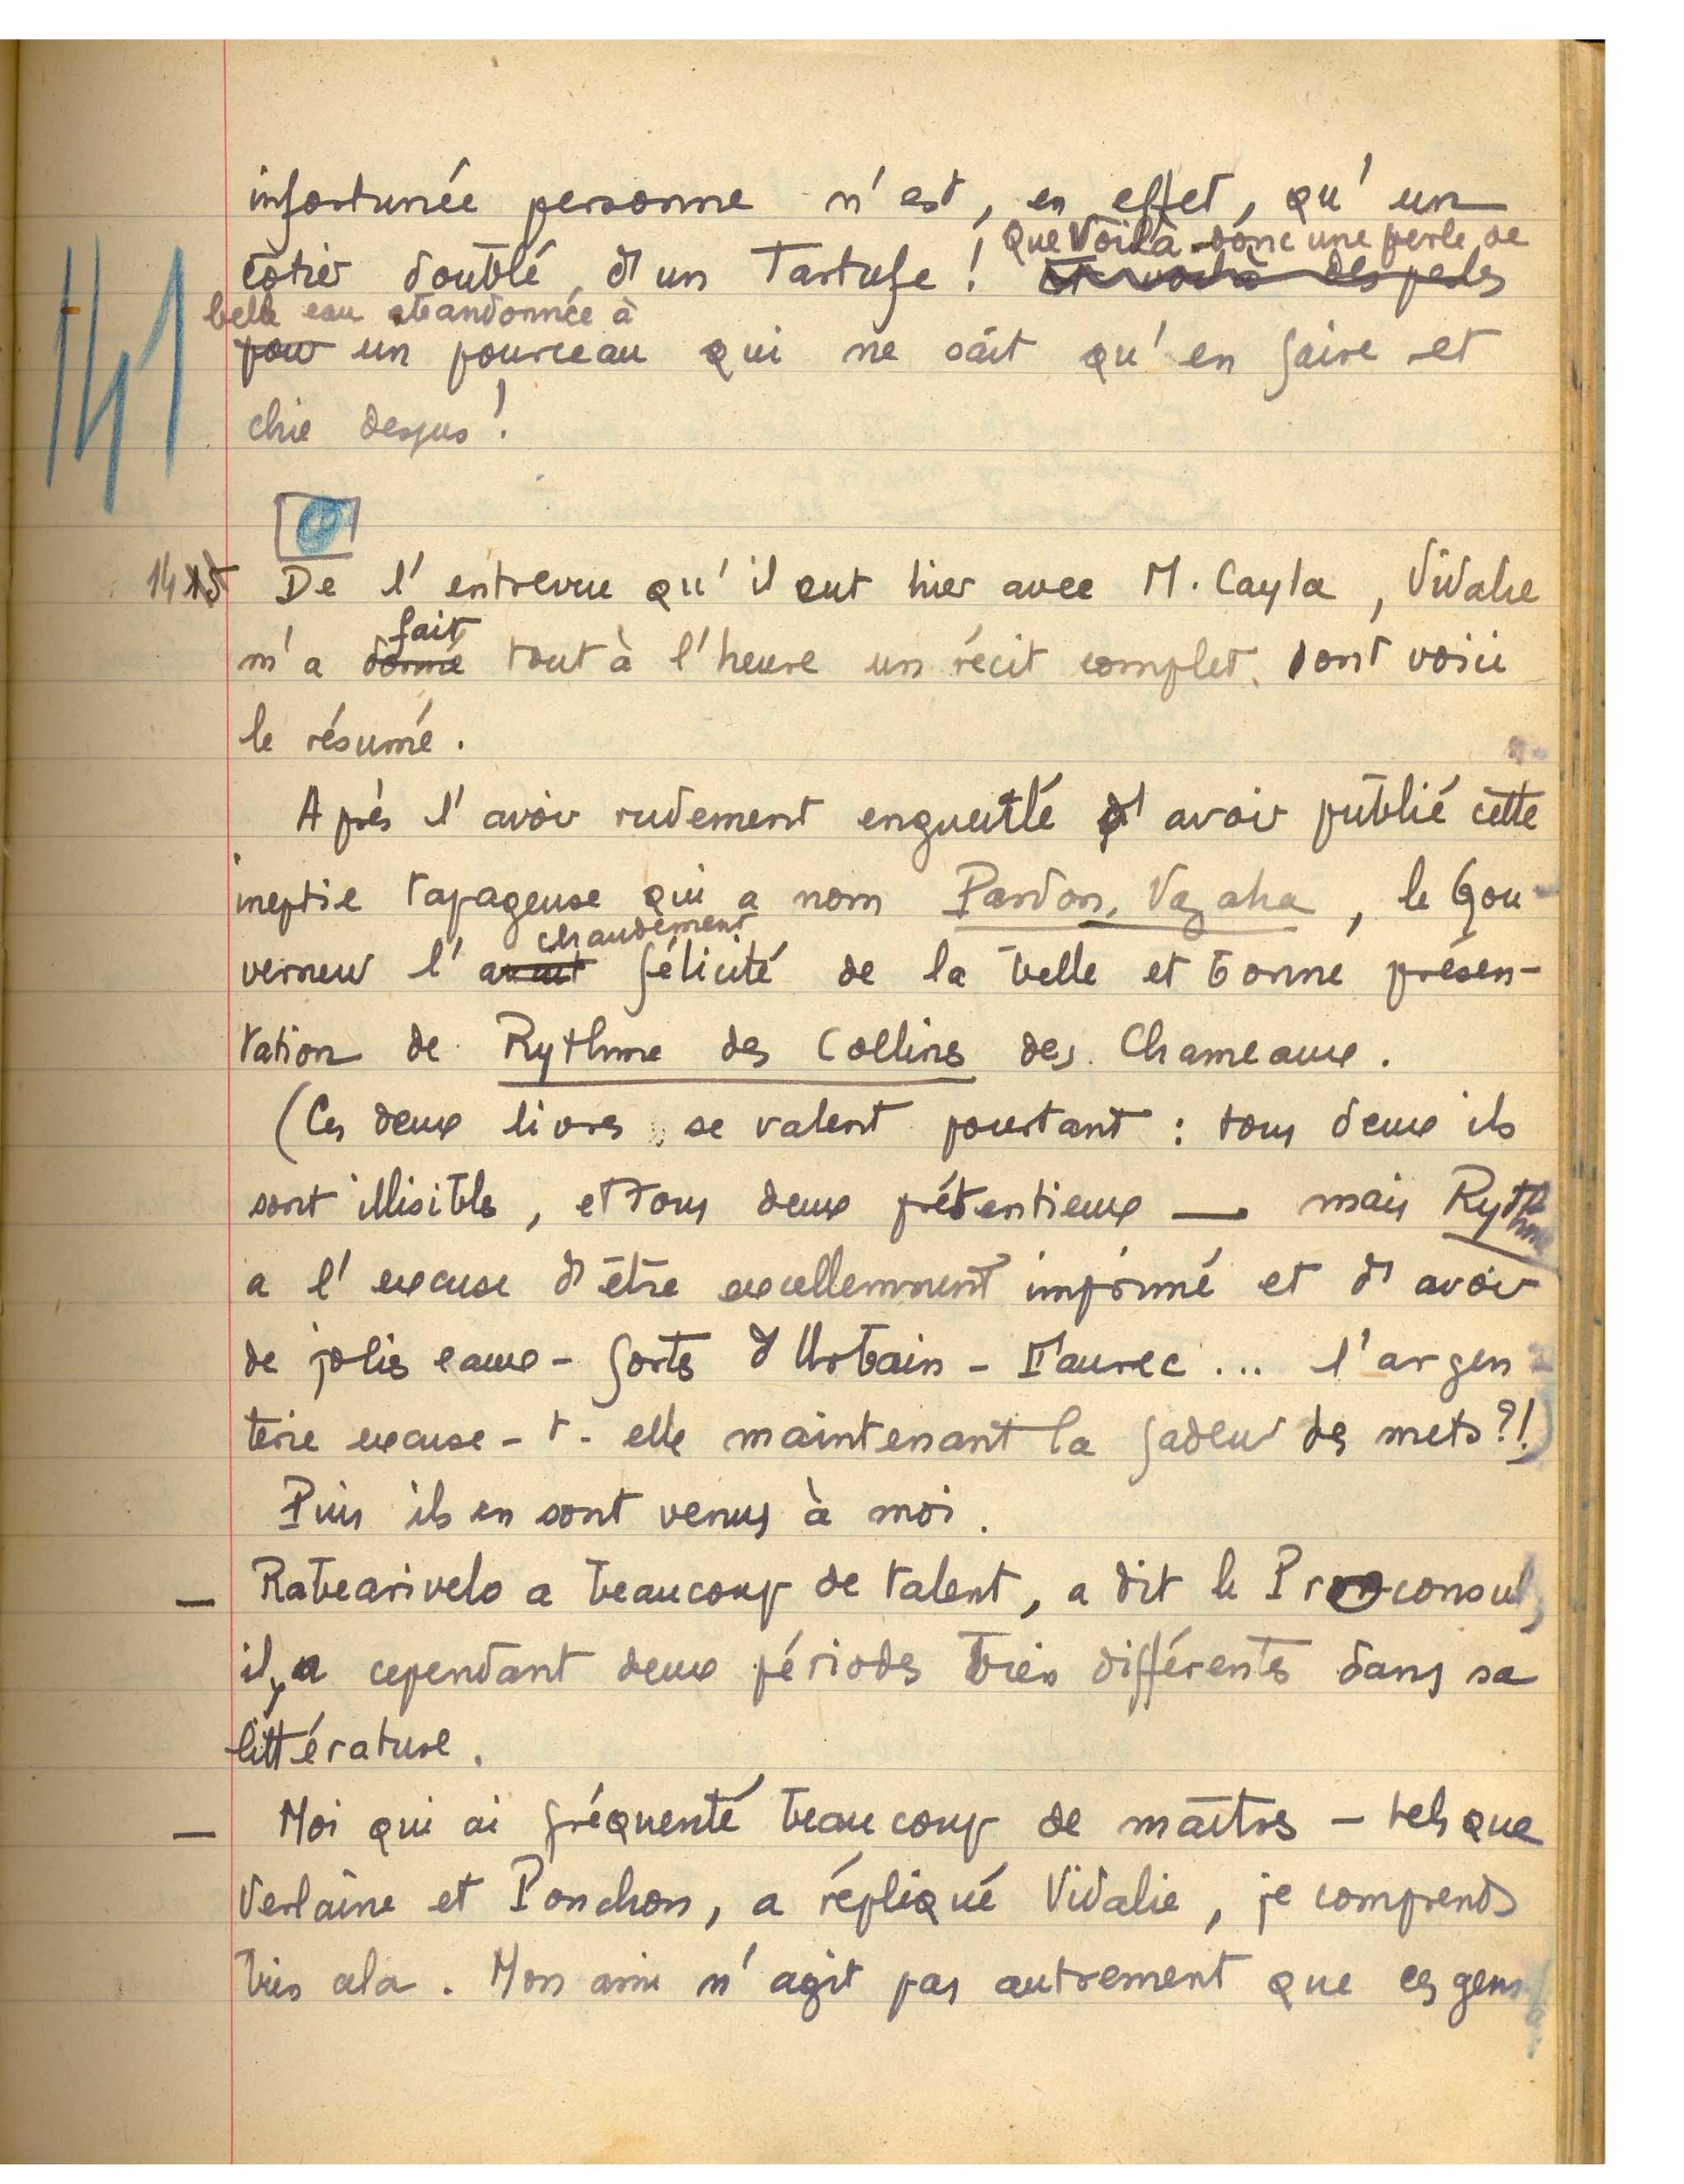 141
infortunée personne n'est, en effet, qu'un
! Que Voilà donc une perle de
côtier doublé d'un Tartufe ! Et voilà des perles
belle eau abandonnée à
pour un pourceau qui ne sait qu'en faire et
chie dessus !
14 15 De l'entrevue qu'il eut hier avec M. Cayla, Vidalie
fait
m'a donné tout à l'heure un récit complet dont voici
le résumé.
Après l'avoir rudement engueulé d'avoir publié cette
ineptie tapageuse qui a nom Pardon, Vazaha, le Gou-
chaudement
verneur l'avait félicité de la belle et bonne présen-
tation de Rythme des Collines des Chameaux.
(Ces deux livres se valent pourtant : tous deux ils
sont illisibles, et tous deux prétentieux — mais Rythme
a l'excuse d'être excellemment imprimé et d'avoir
de jolies eaux-fortes d'Urbain-Faurec... l'argen-
terie excuse-t-elle maintenant la fadeur des mets ?!)
Puis ils en sont venus à moi.
— Rabearivelo a beaucoup de talent, a dit le Proconsul,
il y a cependant deux périodes bien différentes dans sa
littérature.
— Moi qui ai fréquenté beaucoup de maîtres — tels que
Verlaine et Ponchon, a répliqué Vidalie, je comprends
très cela. Mon ami n'agit pas autrement que ces gens